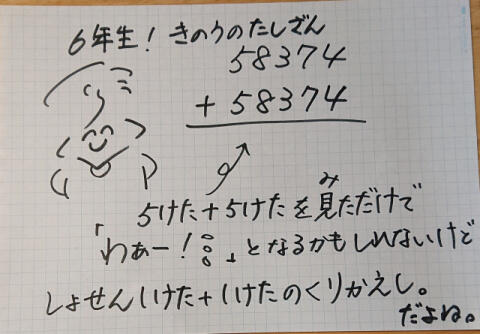 6年生！きのうのたしざん
58374
+58374
5けた+5けたを見ただけで
み
「わぁー！」となるかもしれないけど
しょせん1けた+1けたのくりかえし。
だよね。